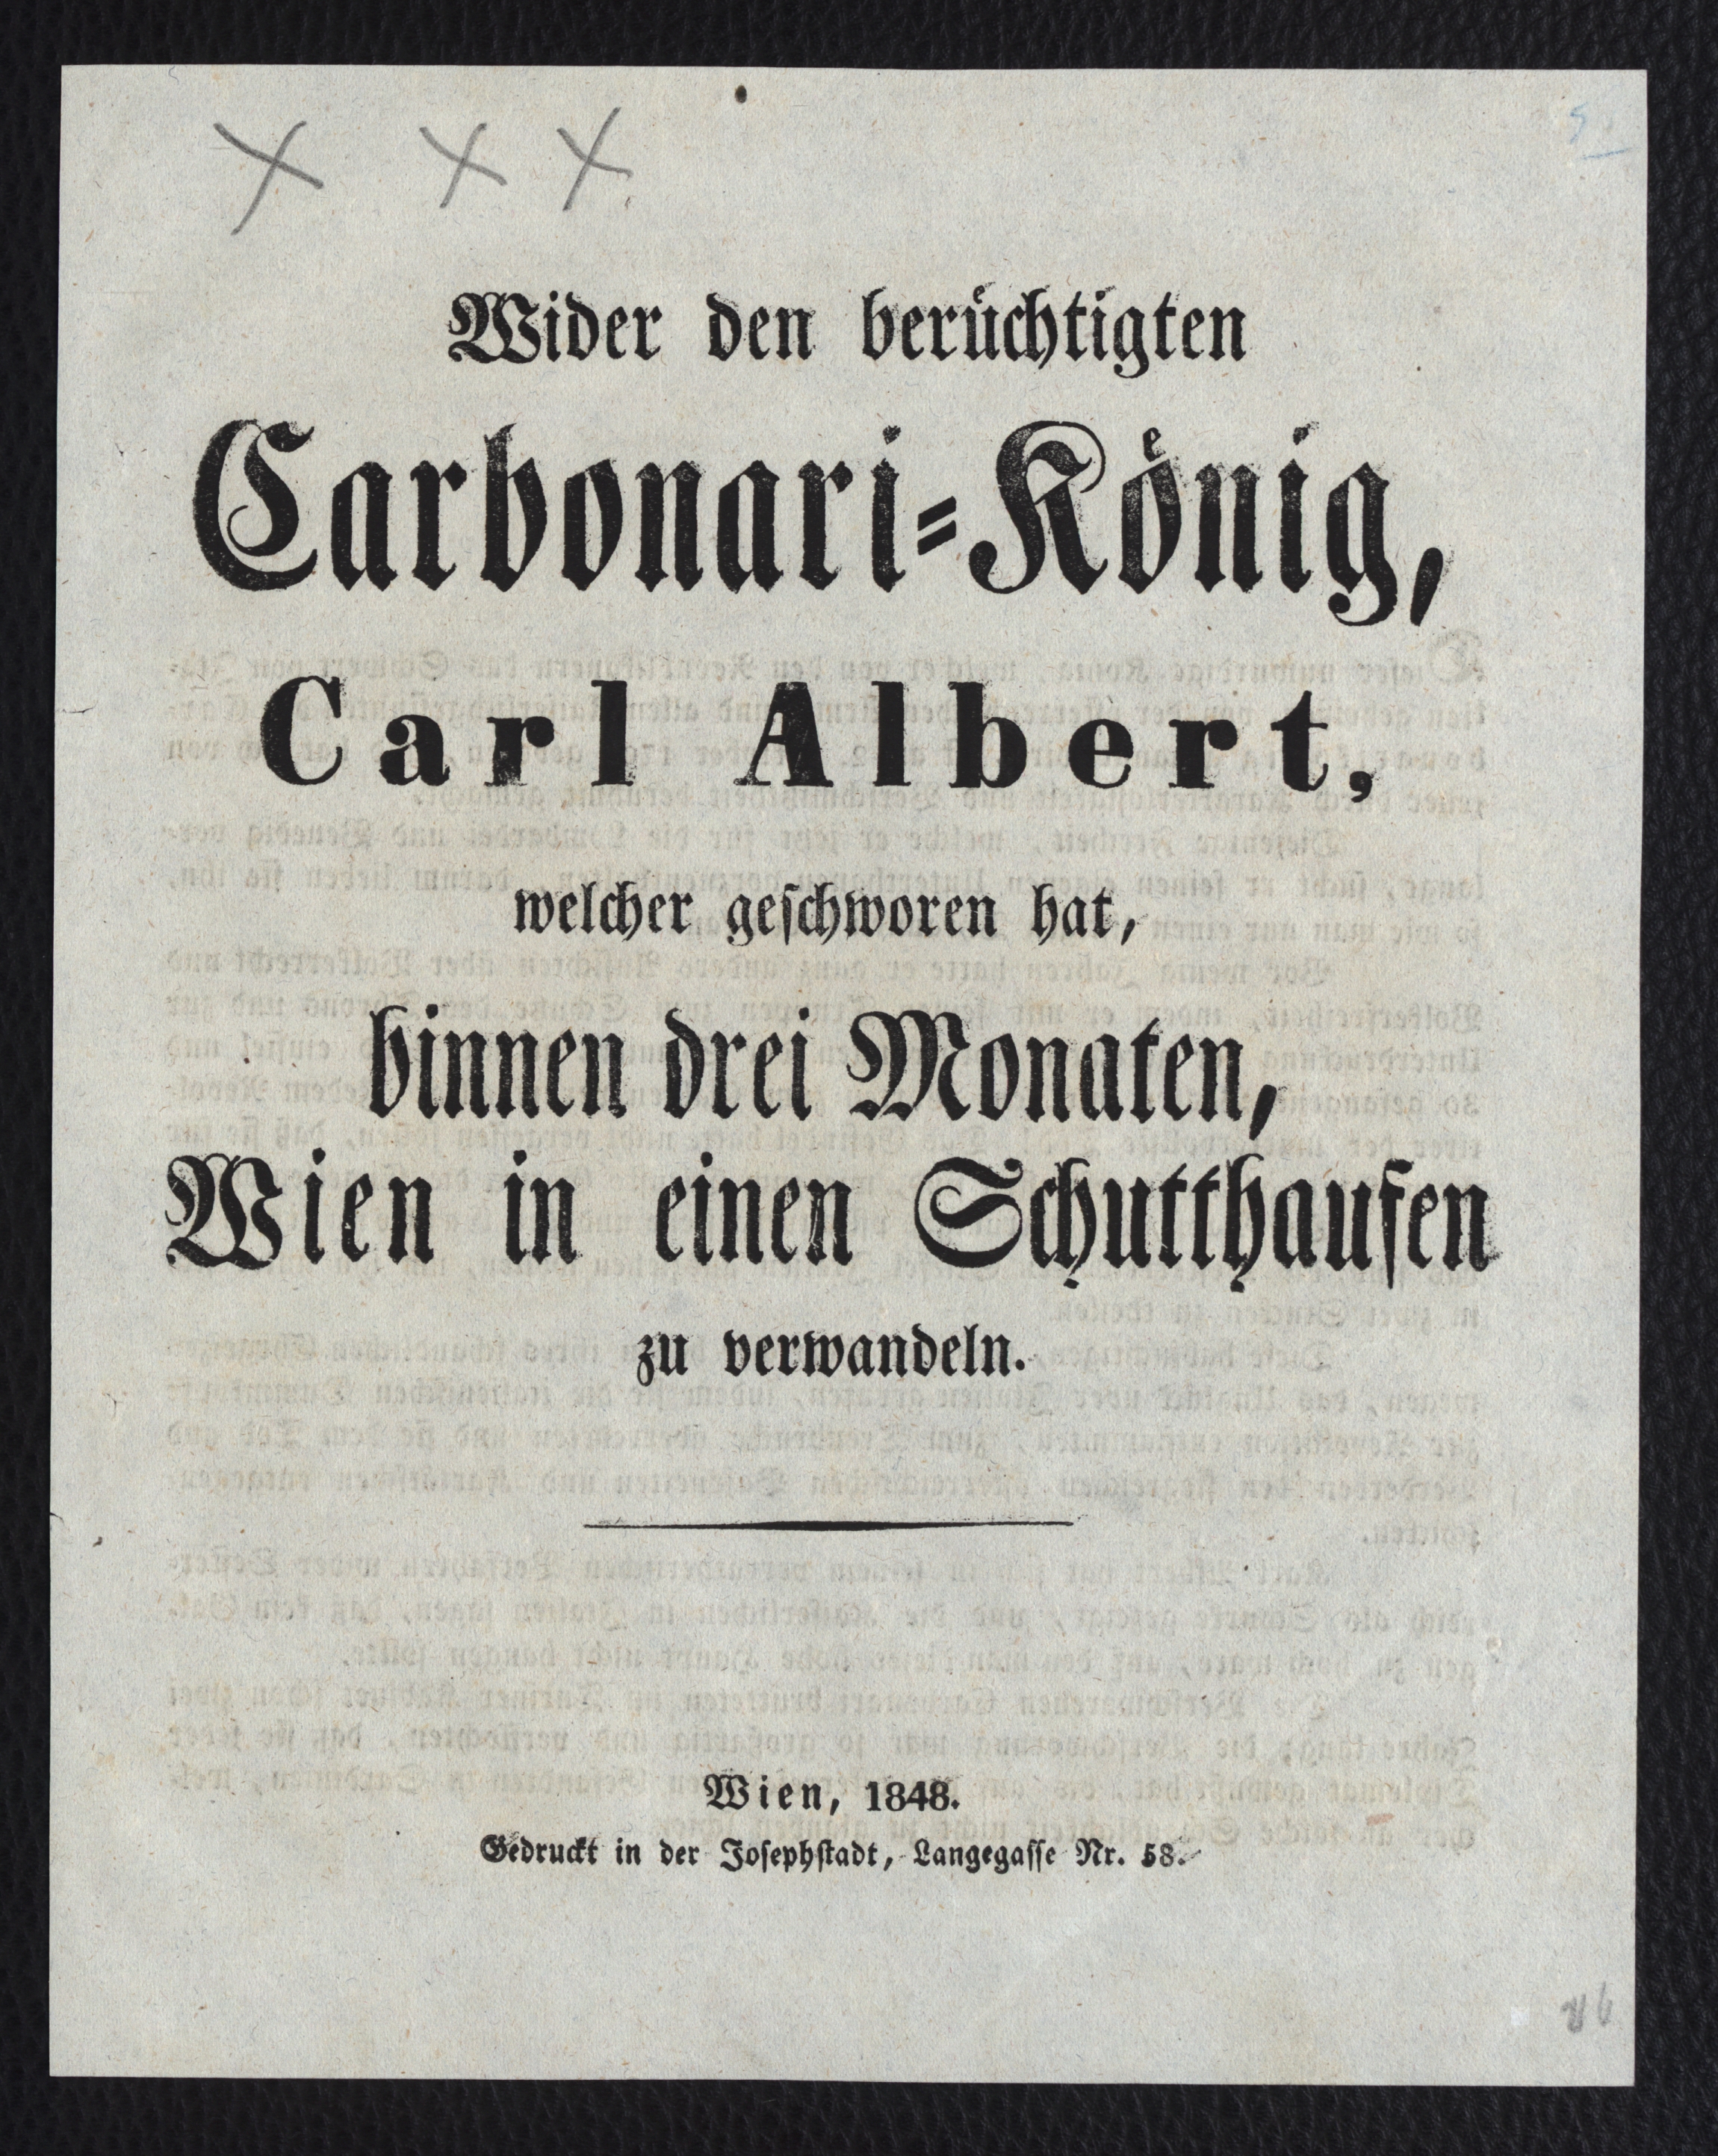 Wider den berüchtigten
Carbonari-König,
Carl Albert,
welcher geschworen hat,
binnen drei Monaten,
Wien in einen Schutthaufen
zu verwandeln.
Wien, 1848.
Gedruckt in der Josephstadt, Langegasse Nr. 58.